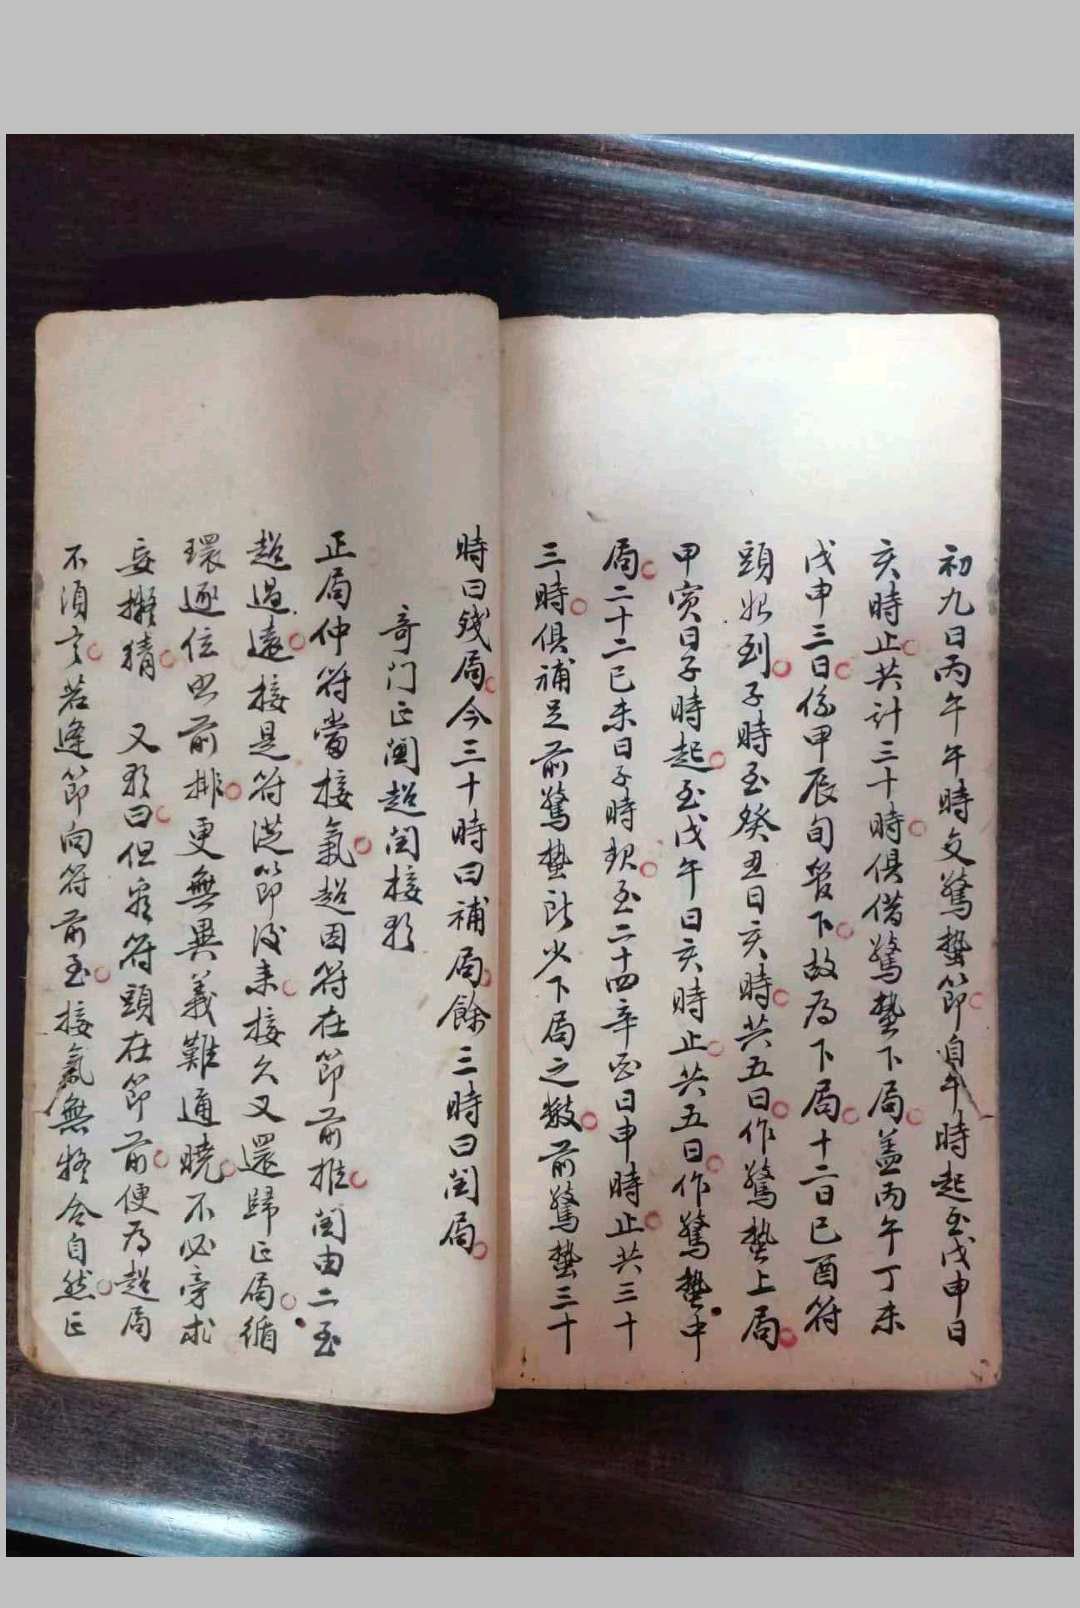 初九日丙午午時交驚蟄節自午時起至戊申日
亥時止共計三十時俱借驚蟄下局蓋丙午丁未
戊申三日係甲辰旬管下故為下局十二日已酉符
頭始到子時至癸丑日亥時共五日作驚蟄上局
甲寅日子時起至戊午日亥時止共五日作驚蟄中
局二十二已未日子時起至二十四辛酉日申時止共三十
三時俱補足前驚蟄所少下局之數前驚蟄三十
時曰殘局今三十時曰補局餘三時曰閏局
奇门正閏超閏接歌
正局仲符當接氣超因符在節前推閏由二至
超過遠接是符從節後来接久又還歸正局循
環逐位出前排更無異義難通曉不必旁求
妄擬猜 又歌曰但看符頭在節前便為超局
不須言若逢節向符前至接氣無疑合自然正